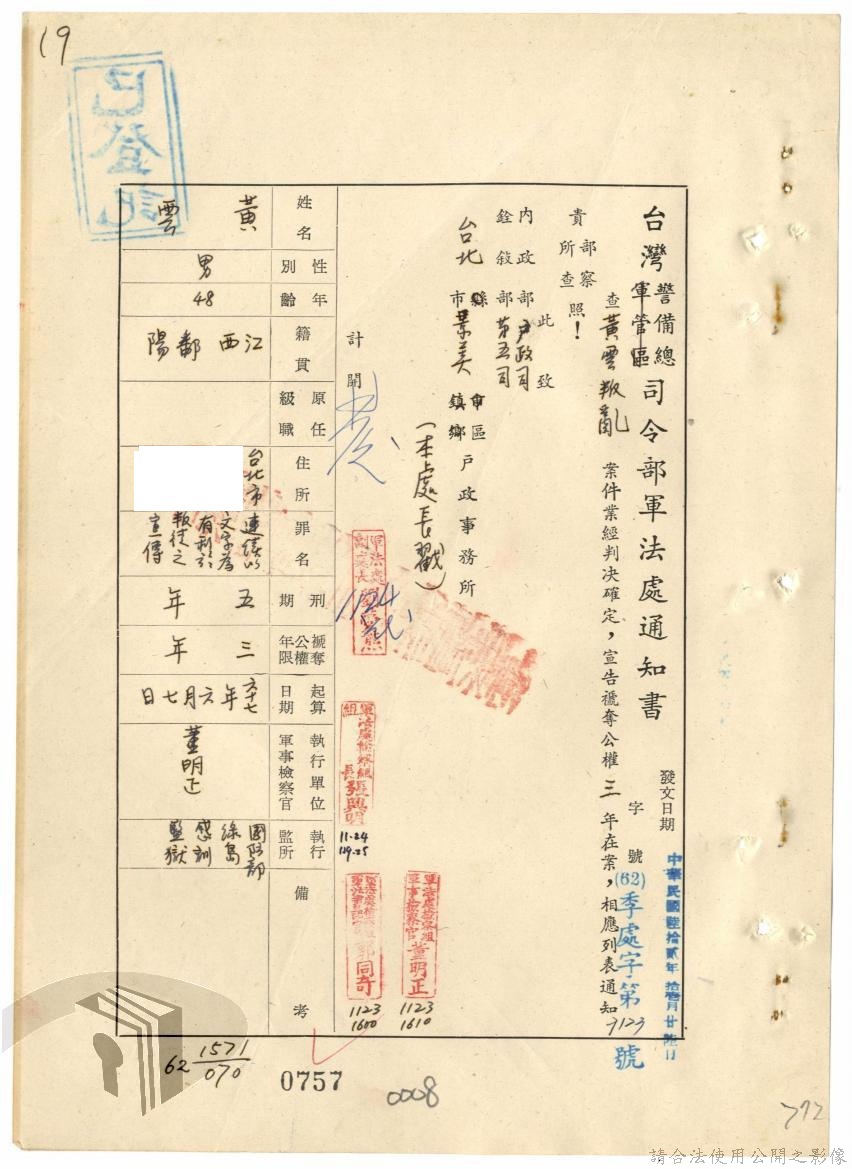 19
已登記
台灣警備總軍管區司令部軍法處通知書
發文日期
中華民國陸拾貳年拾壹月廿陸日
字號
(62)季處字第7123號
查黃雲叛亂案件業經判決確定,宣告褫奪公權三年在案,相應列表通知
貴部所察查照!
此致
內政部戶政司
銓敘部第五司
台北縣市景美市區鎮鄉戶政事務所
(本處長戳)
計開
軍法處副處長
1124
軍法處檢察組組長張興明
11.24
軍法處檢察組軍事檢察官董明正
1123
1610
同奇
1123
1600
姓名 黃雲
性別 男
年齡 48
籍貫 江西鄱陽
原任級職
住所 台北市
罪名 連續以文字為有利於叛徒之宣傳
刑期 五年
褫奪公權年限 三年
起算日期 六十七年六月七日
執行單位軍事檢察官 董明正
執行監所 國防部綠島感訓監獄
備考
62 1571/070
0757
0008
772
請合法使用公開之影像